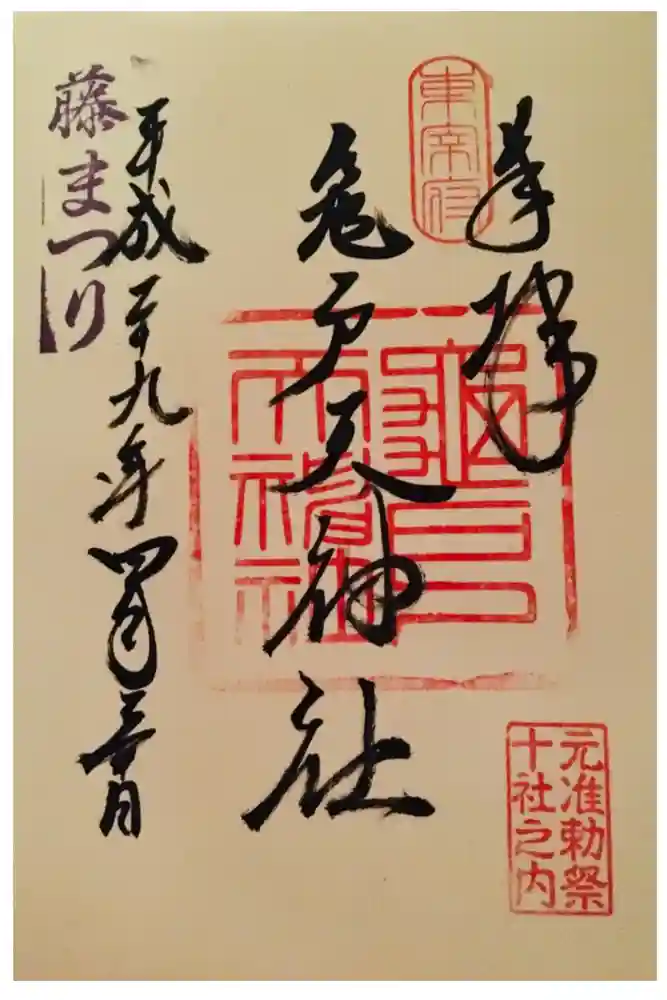 奉拝
東宰府
龜戸
天神社
亀戸天神社
元准勅祭
十社之内
平成二十九年四月三十日
藤まつり